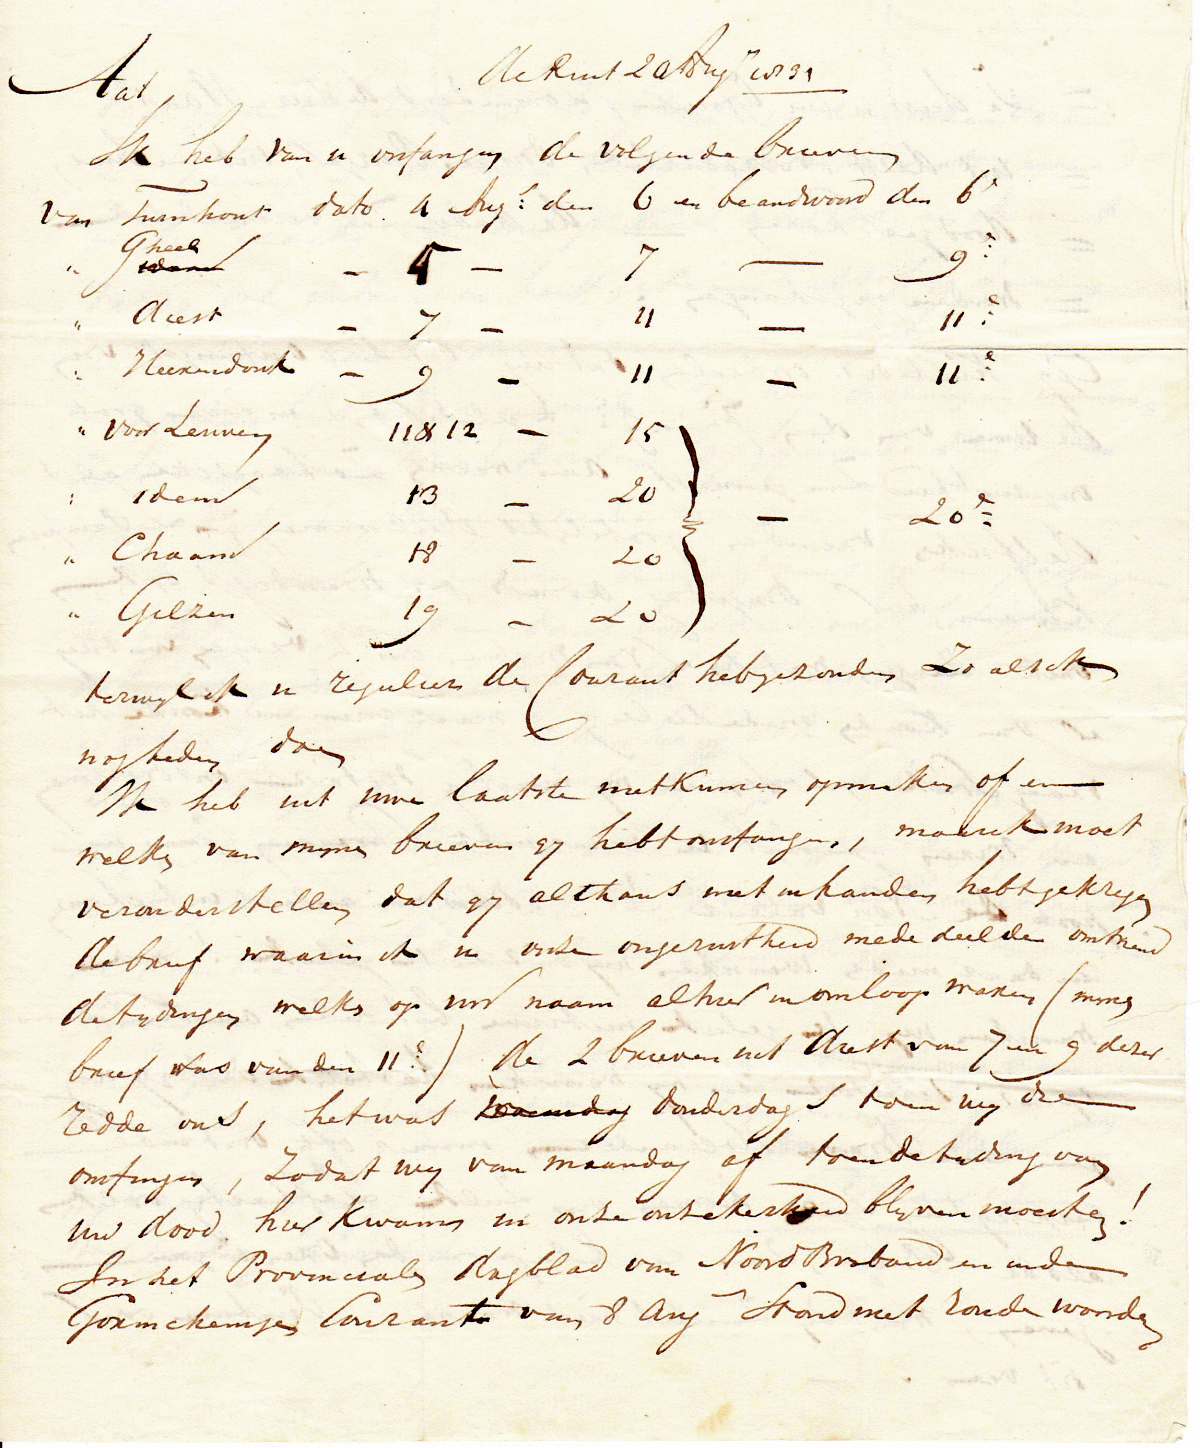 Aat, de Runt 20 Aug 1831
Ik heb van u ontfangen de volgende brieven
van Turnhout dato 4 Augs den 6 en beandwoord den 6e
" Gheel idem – 5 – 7 — 9e
" diest – 7 – 11 — 11e
" Heerendonk – 9 – 11 – 11e
" voor Leuven 11 & 12 – 15
" idem 13 – 20 – 20e
" Chaam 18 – 20
" Gilzen 19 – 20
terwyl ik u regulier de Courant heb gezonden zo als ik
nog heden doe
Ik heb uit uwe laatste niet kunnen opmaken of en
welke van myne brieven gy hebt ontfangen, maar ik moet
veronderstellen dat gy althans niet in handen hebt gekregen
de brief waarin ik u onze ongerustheid mededeelde omtrend
de tydingen welke op uw naam alhier in omloop waren (myne
brief was van den 11e) de 2 brieven uit diest van 7 en 9 dezer
redde ons, het was maandag donderdag toen wy die
ontfingen, zodat wy van maandag af toen de tyding van
uw dood hier kwam in onze onzekerheid blyven moesten!
In het Provinciale dagblad van Noord Braband en in de
Gorinchemse Courant van 8 Aug stond met ronde woorden